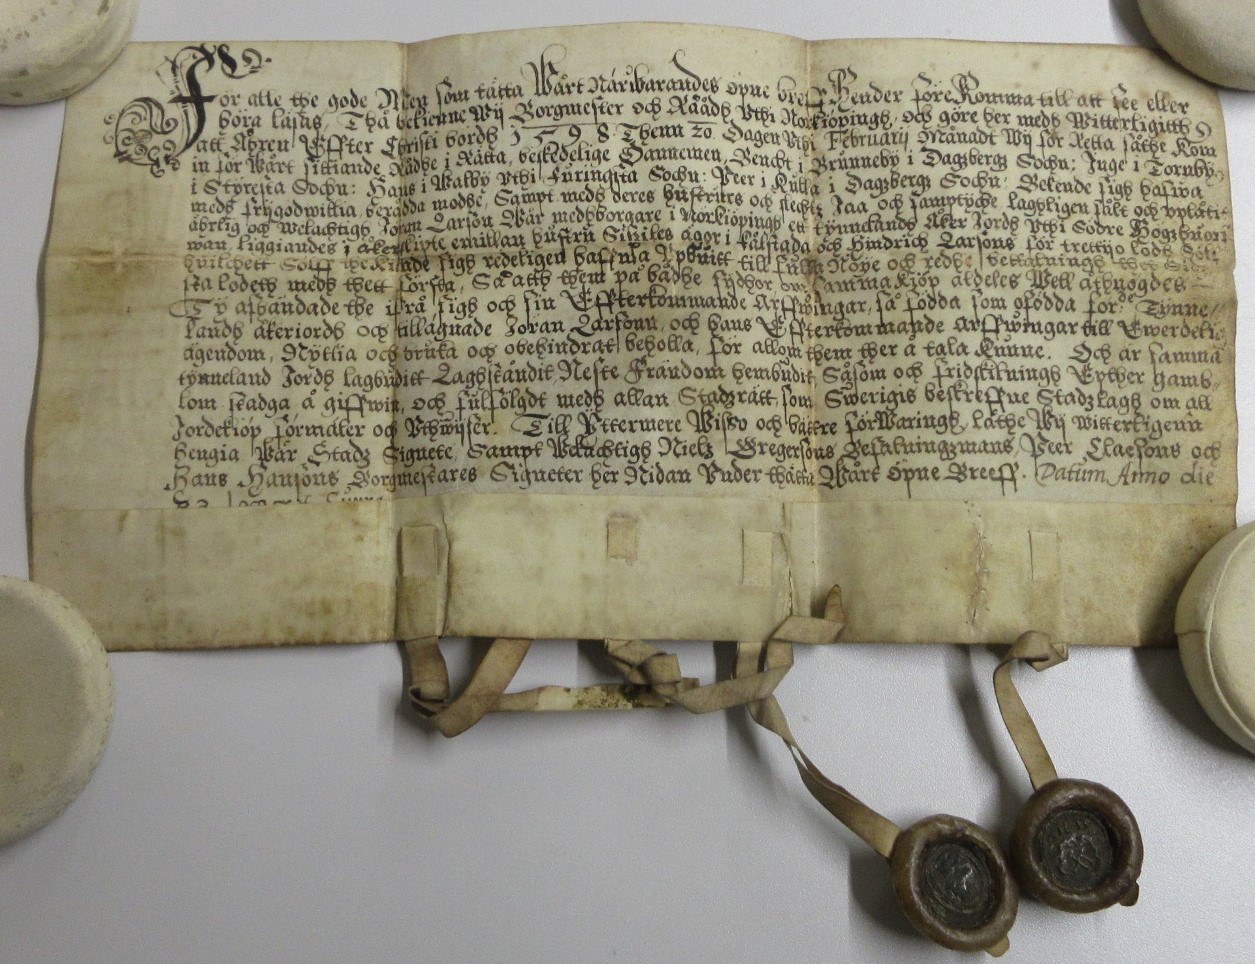 För alle the gode Men som tätta Wårt Närwarandes öpne breff Hender före Komma till att see eller
höra läsas, Thå bekienne Wij Borgmester och Råådh Vthi Norköpingh, och göre her meds Witterligitth
att Åhren Effter Christi bördh 1598 Thenn 20 Dagen Vthi Februarij Månadt Wij för Retta säthe Kom
in för Wårt sittiande Rådhe i Rätta, beskedelige Dannemen, Bencht i Brünneby i Dagsbergz Sochn: Inge i Tornby,
i Styresta Sochn: Hans i Walby Vthi Furingsta Sochn: Peer i Kulla i Dagzbergz Sochn: Bekende sigh haffwa
meds frijgodwillia, beradda modhe, Sampt meds deres hustrurs och slechtz Jaa och samptycke laghligen sålt och vplåtit
ährlig och welachtigh Joran Larson Wår medhborgare i Norköpingh ett tynnelandt Åker Jordh Vthi Södre
liggiandes i åker emillan hustru Sigriles ägor i och Hindrich Larsons för trettijo lodh
huilchett the Kiände sigh redeligen haffua Vpburit till fulla Nöye och redh,
sta lodeth meds thett första, Så att them på bådhe sydhor om samma Kiöp aldeles Well åthnögdes
Ty afhändade the ifrå sigh och sin Effterkommande Arffwingar, så födda som ofödda för: Tynne
landh åkeriordh och tillägnade Joran Larsonn, och hans Effterkommande arffwingar till Ewerdelig
ägendom, Nÿttia och bruka och obehindrat beholla, för allom them ther å tala Kunne. Och är samma
tynneland Jordh lagbudit Laghståndit, Neste Frändom hembudit, Såsom och fridskillningh Epther gamb
lom stadga, å giffwin, och fulfölgdt meds allan Stadzrätt, som Swerigis beskreffne Stadzlagh om all
Jordekiöp förmäler och Vthwijser. Till Yttermere Wisso och bättre förWaringh, låthe Wij witterligenn
hengia Wår Stadz Signete, Sampt Welachtigh Nielz Gregersons Befalningzmans, Peer Claesons och
Hans Hansons Borgmestares Signeter her Nidan Vnder thätta Wårt öpne Breeff. Datum Anno die